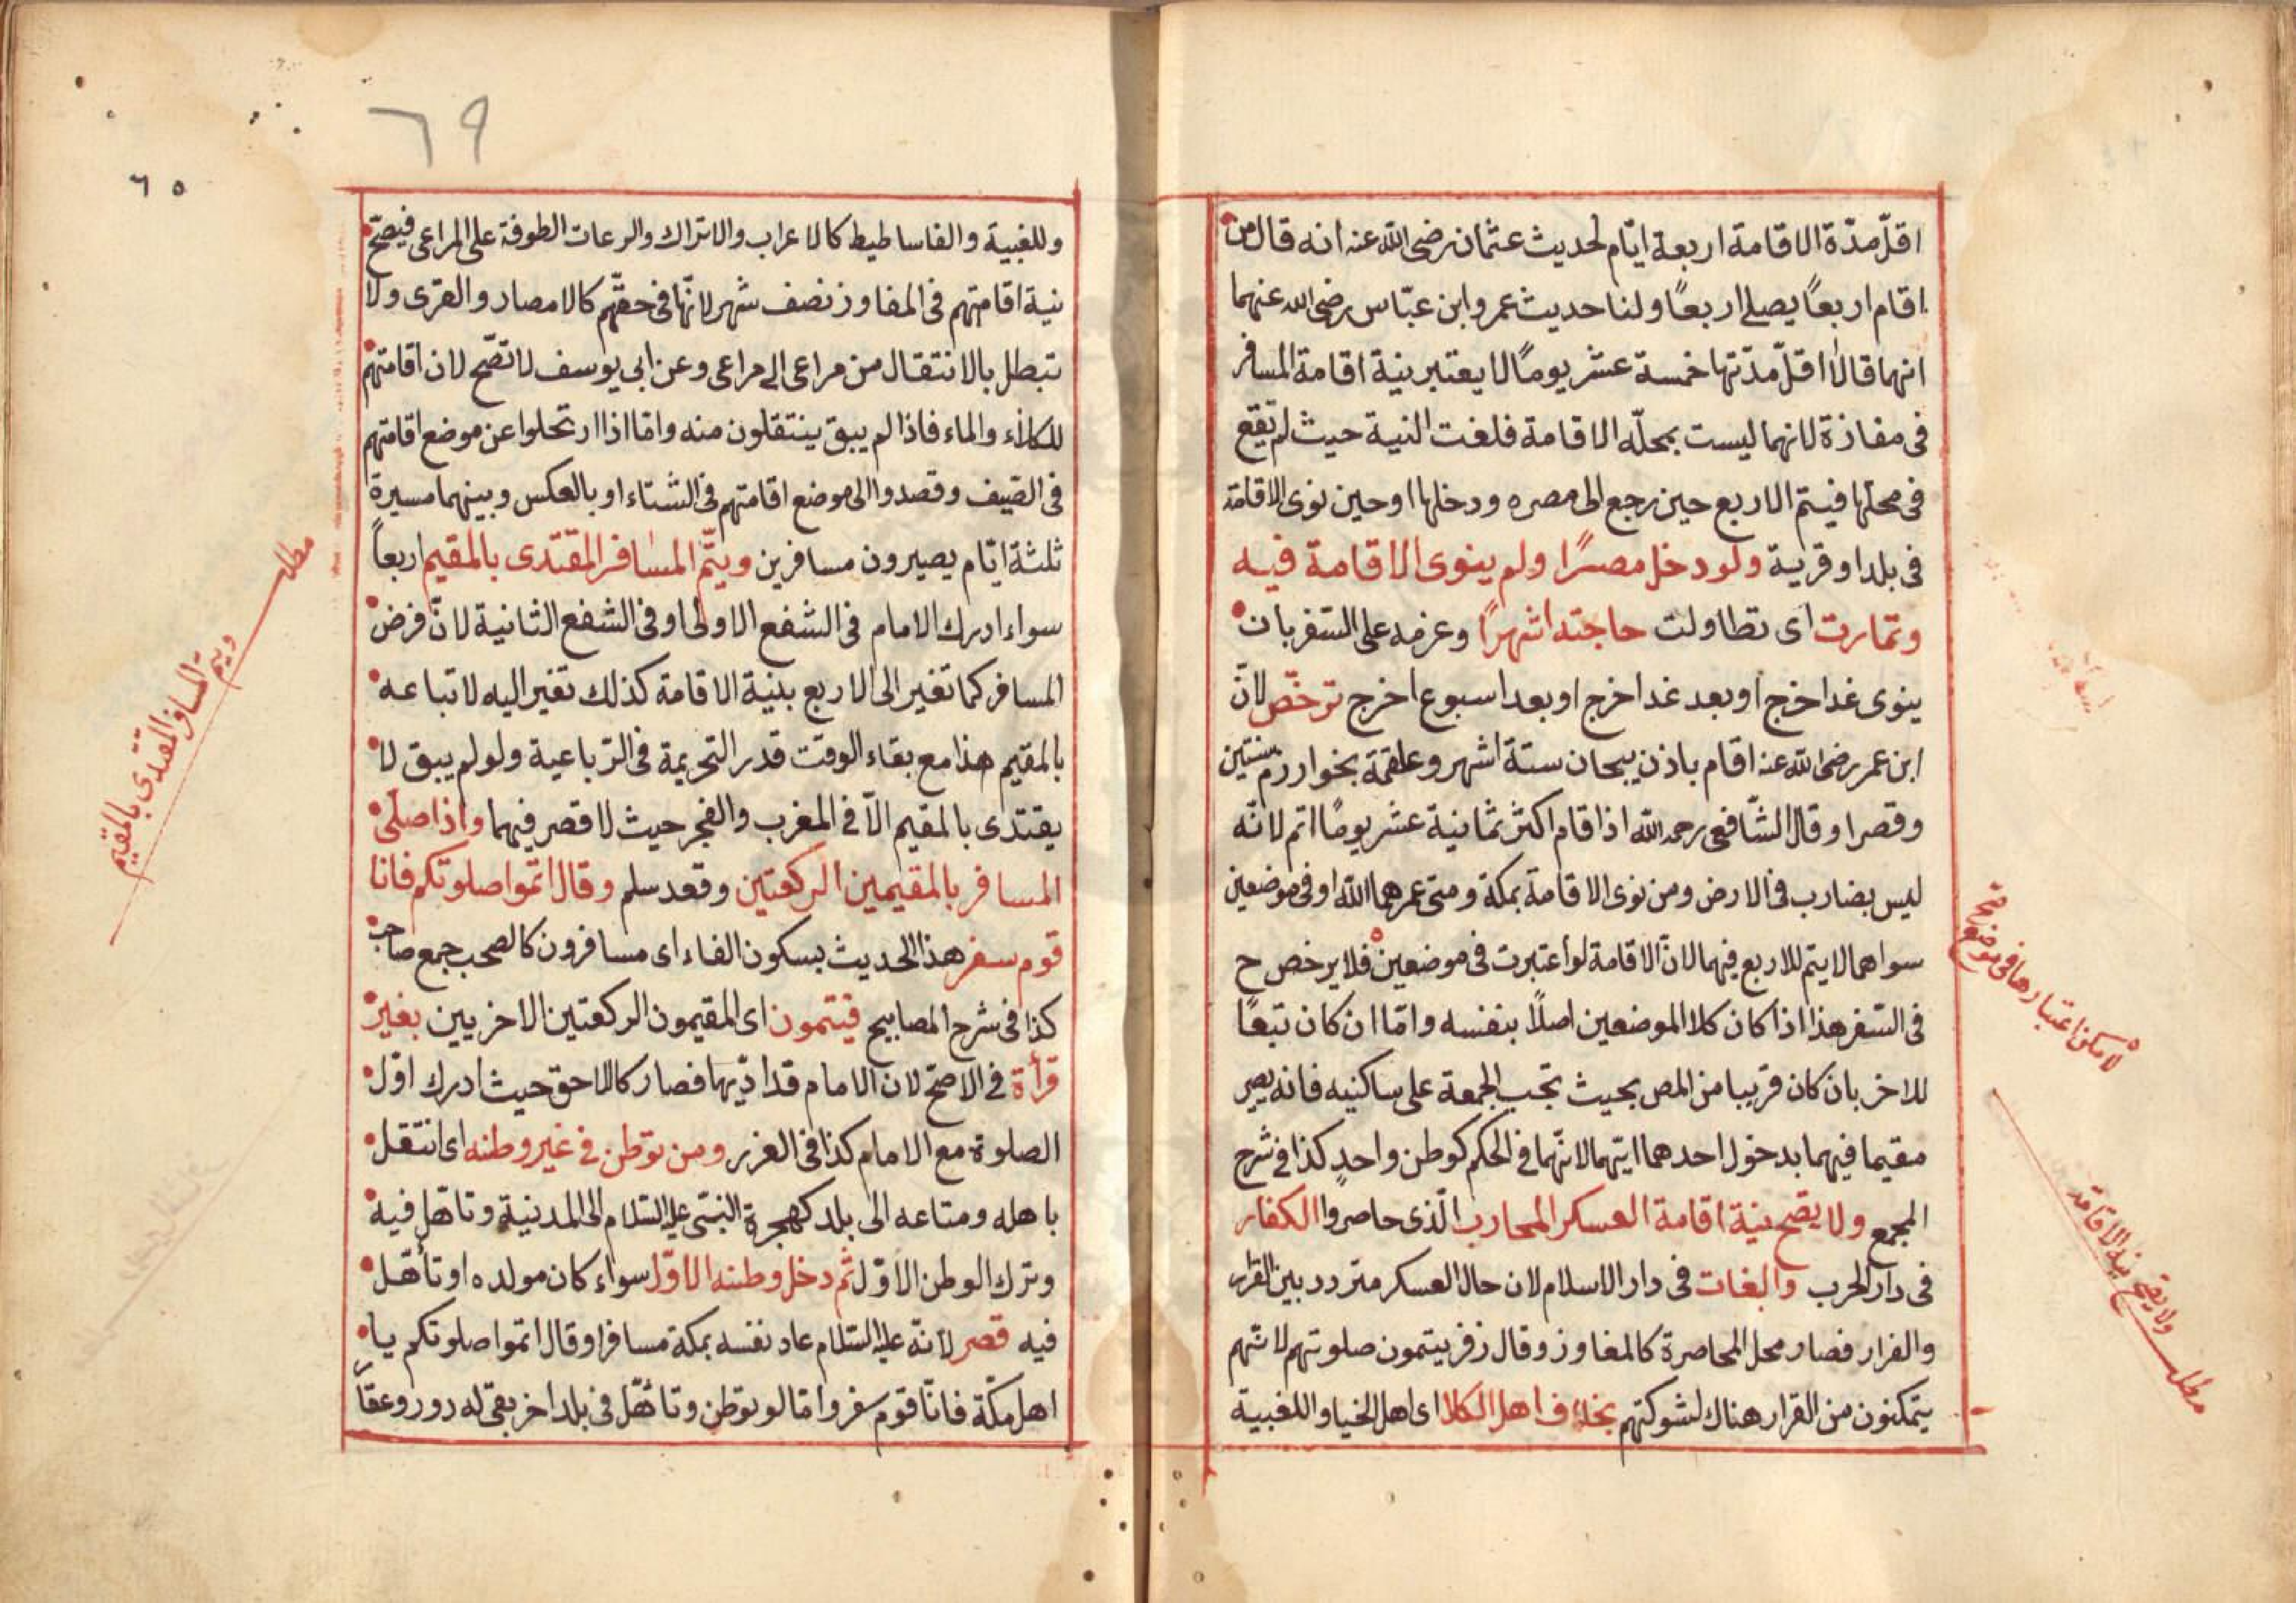 اقلّ مدّة الاقامة اربعة ايّام لحديث عثمان رضى الله عنه انه قال من
اقام اربعًا يصلى اربعًا ولنا حديث عمر وابن عبّاس رضى الله عنهما
انهما قالا اقلّ مدّتها خمسة عشر يومًا لا يعتبر نية اقامة المسافر
فى مفازة لانهما ليست بمحلّه الاقامة فلغت النية حيث لم تقع
فى محلها فيتم الاربع حين رجع الى مصره ودخلها او حين نوى الاقامة
فى بلد او قرية ولو دخل مصرًا ولم ينوى الاقامة فيه
وتمارت اى تطاولت حاجته اشهرًا وعزمه على السفر بان
ينوى غدا اخرج او بعد غد اخرج او بعد اسبوع اخرج ترخّص لانّ
ابن عمر رضى الله عنه اقام باذن بيجان ستة اشهر وعلقمة بخوارزم سنتين
وقصرا وقال الشّافعى رحمه الله اذا قام اكثر ثمانية عشر يومًا اتم لانّه
ليس بضارب فى الارض ومن نوى الاقامة بمكة ومنى عمرهما الله او فى موضعين
سواهما لا يتم للاربع فيهما لانّ الاقامة لو اعتبرت فى موضعين فلا يرخص ح
فى السّفر هذا اذا كان كلا الموضعين اصلًا بنفسه وامّا ان كان تبعًا
للاخر بان كان قريبا من المصر بحيث تجب الجمعة على ساكنيه فانه يصير
مقيما فيهما بدخول احدهما ايّهما لانّهما فى الحكم كوطن واحدٍ كذا فى شرح
المجمع ولا يصّح نية اقامة العسكر المحارب الّذى حاصروا الكفار
فى دار الحرب والبغات فى دار الاسلام لان حال العسكر متردد بين القرار
والفرار فصار محل المحاصرة كالمفاوز وقال زفر يتمون صلوتهم لانّهم
يتمكنون من القرار هناك لشوكتهم بخلاف اهل الكلا اى اهل الخيا واللغبية
لامكن اعتبارها فى مواضع
ولا يصّح نية الاقامة
مطلب
٦٩
٦٥
وللغبية والفاساطيط كالاعراب والاتراك والرعات الطوفة على المراعى فيصّح
نية اقامتهم فى المفاوز نصف شهر لانّها فى حقّهم كالامصار والقرى ولا
تبطل بالانتقال من مراعى الى مراعى وعن ابى يوسف لا تصّح لان اقامتهم
للكلاء والماء فاذا لم يبق ينتقلون منه وامّا اذا ارتحلوا عن موضع اقامتهم
فى الصّيف وقصدوا الى موضع اقامتهم فى الشتاء او بالعكس وبينهما مسيرة
ثلثة ايّام يصيرون مسافرين ويتّم المسافر المقتدى بالمقيم اربعاً
سواء ادرك الامام فى الشفع الاولى او فى الشفع الثانية لانّ فرض
المسافر كما تغير الى الاربع بنية الاقامة كذلك تغير اليه لاتباعه
بالمقيم هذا مع بقاء الوقت قدر التحريمة فى الرّباعية ولو لم يبق لا
يقتدى بالمقيم الّا فى المغرب والفجر حيث لا قصر فيهما واذا صلّى
المسافر بالمقيمين الركعتين وقعد سلم وقال اتموا صلوتكم فانا
قوم سفر هذا الحديث بسكون الفاء اى مسافرون كالصحب جمع صاحب
كذا فى شرح المصابيح فيتمون اى المقيمون الركعتين الاخريين بغير
قرأة فى الاصّح لان الامام قد ادّيها فصار كالاحق حيث ادرك اوّل
الصلوة مع الامام كذا فى الغرر ومن توطن فى غير وطنه اى انتقل
باهله ومتاعه الى بلد كهجرة النبّى عليه السّلام الى المدينية وتاهل فيه
وترك الوطن الاوّل ثم دخل وطنه الاوّل سواء كان مولده او تأهّل
فيه قصر لانّه عليه السّلام عاد نفسه بمكة مسافرا وقال اتموا صلوتكم يا
اهل مكّة فانّا قوم سفر وامّا لو توطن وتاهّل فى بلد اخر بقى له دور وعقار
مطلب
ويتم المسافر المقتدى بالمقيم